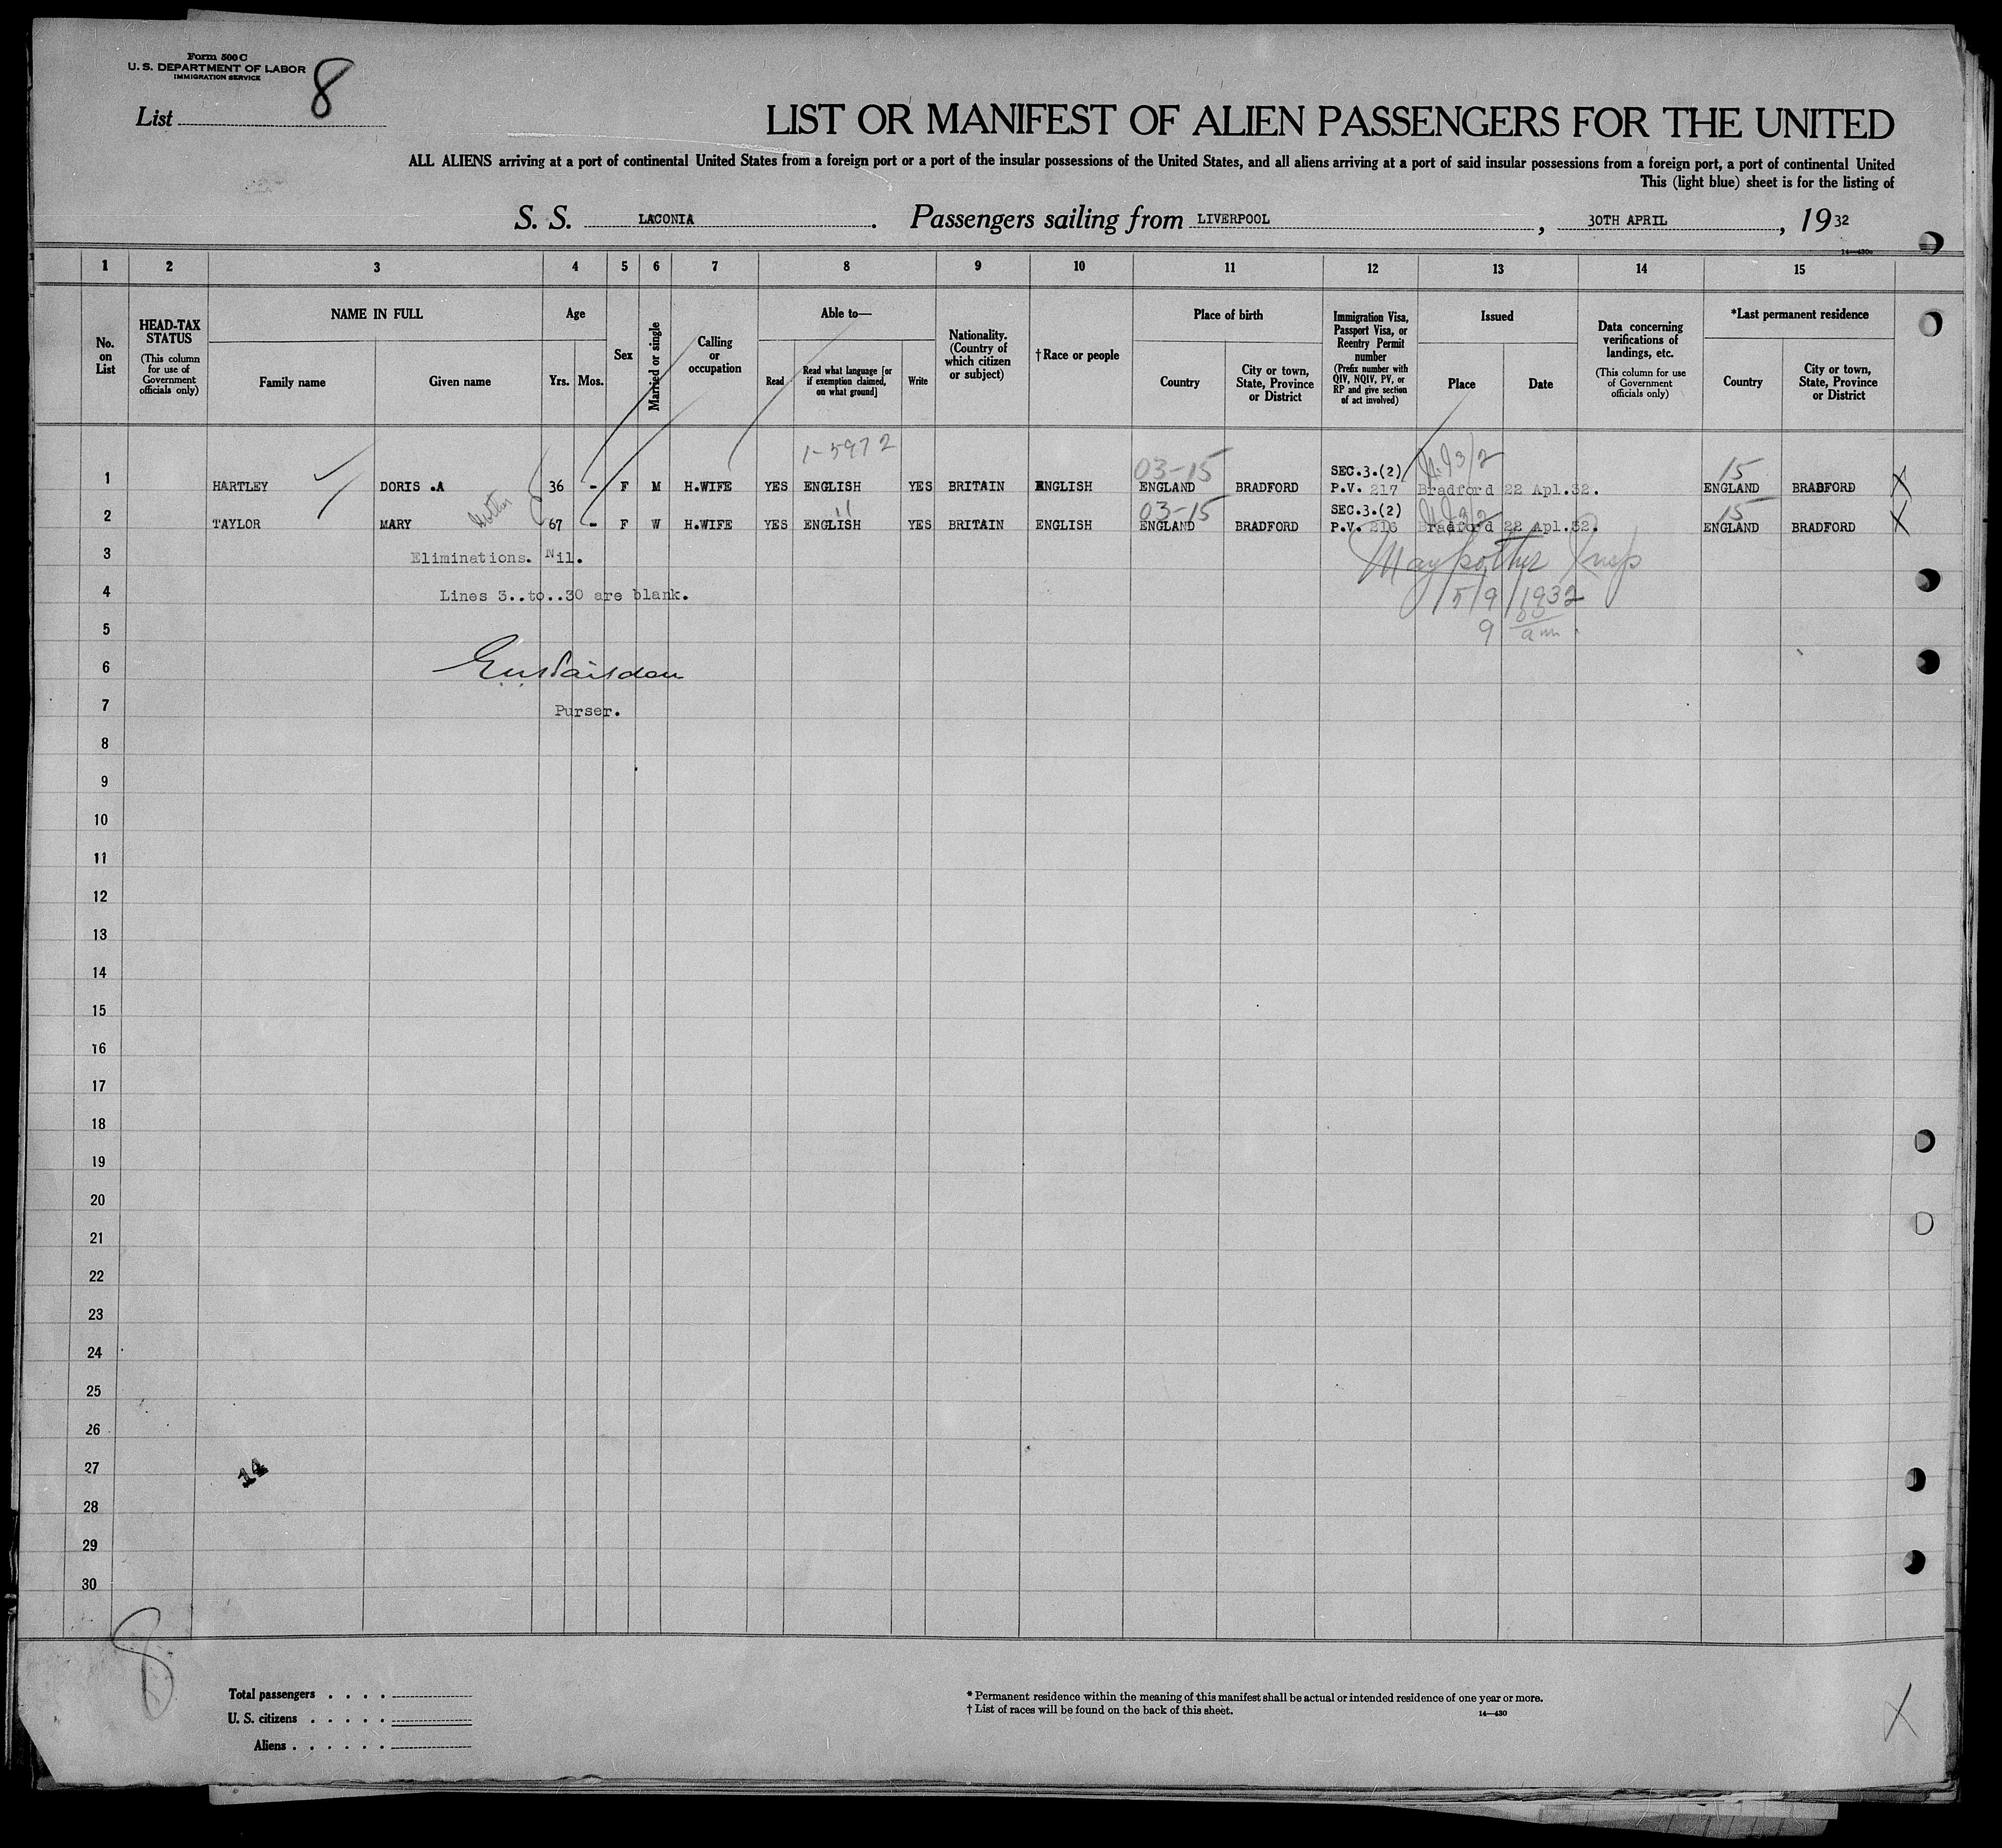 Form 500 C
U. S. DEPARTMENT OF LABOR
IMMIGRATION SERVICE
List 8
LIST OR MANIFEST OF ALIEN PASSENGERS FOR THE UNITED
ALL ALIENS arriving at a port of continental United States from a foreign port or a port of the insular possessions of the United States, and all aliens arriving at a port of said insular possessions from a foreign port, a port of continental United
This (light blue) sheet is for the listing of
S. S. LACONIA. Passengers sailing from LIVERPOOL, 30TH APRIL, 1932
14—430a
1 2 3 4 5 6 7 8 9 10 11 12 13 14 15
No. on List
HEAD-TAX STATUS
(This column for use of Government officials only)
NAME IN FULL
Family name
Given name
Age
Yrs. Mos.
Sex
Married or single
Calling or occupation
Able to—
Read
Read what language [or if exemption claimed, on what ground]
Write
Nationality. (Country of which citizen or subject)
†Race or people
Place of birth
Country
City or town, State, Province or District
Immigration Visa, Passport Visa, or Reentry Permit number
(Prefix number with QIV, NQIV, PV, or RP and give section of act involved)
Issued
Place
Date
Data concerning verifications of landings, etc.
(This column for use of Government officials only)
*Last permanent residence
Country
City or town, State, Province or District
1-5972
03-15 SEC.3.(2) 15
1 HARTLEY DORIS .A 36 - F M H.WIFE YES ENGLISH YES BRITAIN ENGLISH ENGLAND BRADFORD P.V. 217 Bradford 22 Apl.32. ENGLAND BRADFORD X
Mother 11 03-15 SEC.3.(2) 15
2 TAYLOR MARY 67 - F W H.WIFE YES ENGLISH YES BRITAIN ENGLISH ENGLAND BRADFORD P.V. 216 Bradford 22 Apl.32. ENGLAND BRADFORD X
3 Eliminations. Nil. Insp
4 Lines 3..to..30 are blank. 5/9/1932
5 9 am.
6
7 Purser.
8
9
10
11
12
13
14
15
16
17
18
19
20
21
22
23
24
25
26
27 14
28
29
30
8
Total passengers . . . .
U. S. citizens . . . . .
Aliens . . . . . .
* Permanent residence within the meaning of this manifest shall be actual or intended residence of one year or more.
† List of races will be found on the back of this sheet. 14—430
X